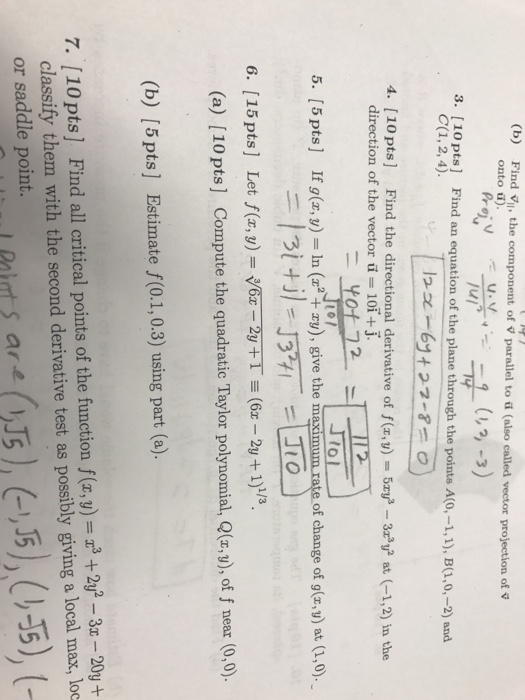 (b) Find v⃗∥, the component of v⃗ parallel to u⃗ (also called vector projection of v⃗
onto u⃗).
Proj v = u·v / |u|² · = -9/14 (1, 2, -3)
3. [10 pts] Find an equation of the plane through the points A(0, -1, 1), B(1, 0, -2) and
C(1, 2, 4).
12x - 6y + 2z - 8 = 0
4. [10 pts] Find the directional derivative of f(x, y) = 5xy³ - 3x³y² at (-1, 2) in the
direction of the vector u⃗ = 10i⃗ + j⃗.
= 40+72 / √101 = 112 / √101
5. [5 pts] If g(x, y) = ln (x² + xy), give the maximum rate of change of g(x, y) at (1, 0).
= |3i + j| = √3²+1 = √10
6. [15 pts] Let f(x, y) = ∛6x - 2y + 1 ≡ (6x - 2y + 1)^1/3.
(a) [10 pts] Compute the quadratic Taylor polynomial, Q(x, y), of f near (0, 0).
(b) [5 pts] Estimate f(0.1, 0.3) using part (a).
7. [10 pts] Find all critical points of the function f(x, y) = x³ + 2y² - 3x - 20y +
classify them with the second derivative test as possibly giving a local max, loc
or saddle point.
points are (1, √5), (-1, √5), (1, √5), (-